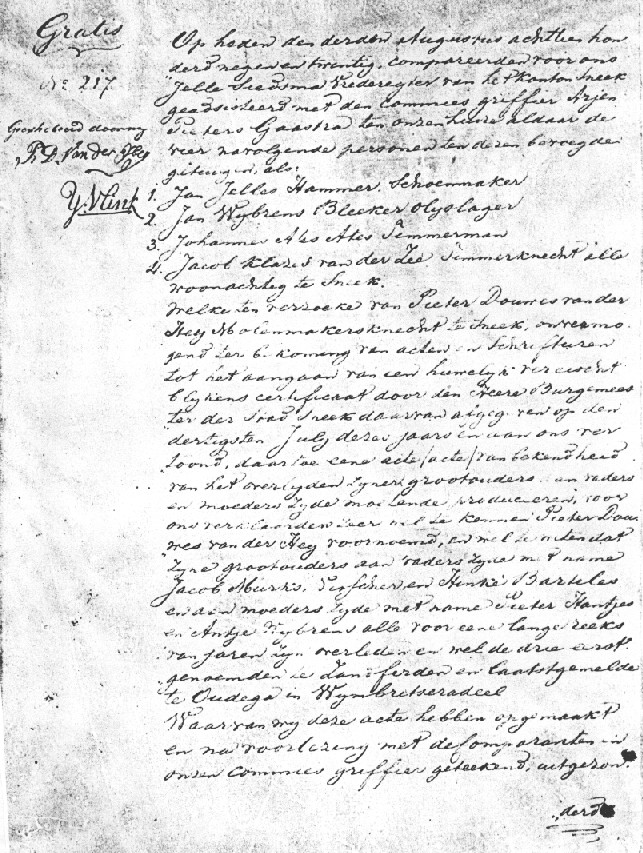 Gratis
No 217
P. D. van der Hey
Y. Vlink
Op heden den derden Augustus achttien hon
derd negen en twintig, compareerden voor ons
Jelle Sierdsma Vrederegter van het Kanton Sneek
geadsisteerd met den Commies griffier Arjen
Pieters Gaastra ten onzen huize aldaar de
vier navolgende personen ten dezen bevoegde
getuigen, als:
1. Jan Jelles Hammer, Schoenmaker
2. Jan Wybrens Bleeker Olyslager
3. Johannes Ales Ales Timmerman
4. Jacob Klazes van der Zee Timmerknecht alle
woonachtig te Sneek.
Welke ten verzoeke van Pieter Douwes van der
Hey Molenmakersknecht te Sneek, onvermo
gend ter bekoming van acten en Schrifturen
tot het aangaan van een huwelyk vereischt
blykens certificaat door den Heere Burgemees
ter der Stad Sneek daarvan afgegeven op den
dertigsten July dezes jaars en aan ons ver
toond, daartoe eene acte /acte/ van bekendheid
van het overlyden zyner grootouders van vaders
en moeders zyde moetende produceren, voor
ons verklaarden zeer wel te kennen Pieter Dou
wes van der Hey voornoemd, en wel te weten dat
zyne grootouders aan vaders zyde met name
Jacob Murks, en Hinke Barteles
en aan moeders zyde met name Pieter Hantjes
en Antje Wybrens alle voor eene lange reeks
van jaren zyn overleden en wel de drie eerst
genoemden te Zandfirden en laatstgemelde
te Oudega in Wymbritseradeel
Waarvan wy deze acte hebben opgemaakt
en na voorlezing met de Comparanten en
onzen Commies griffier geteekend, uitgezon.
derd